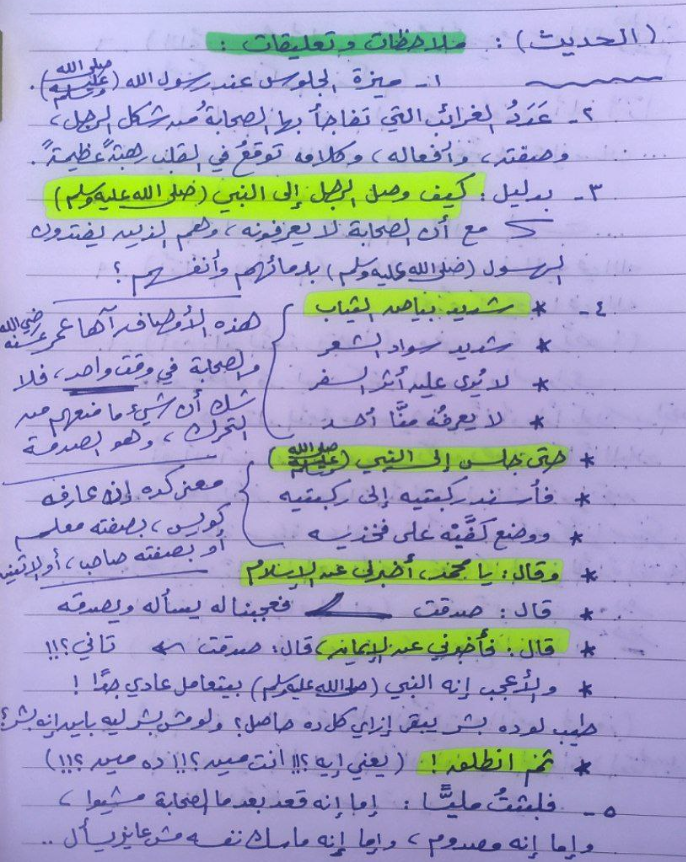 (الحديث) : ملاحظات و تعليقات :
١- ميزة الجلوس عند رسول الله (صلى الله عليه وسلم).
٢- عَدَدُ الغرائب التي تفاجأ بها الصحابةُ من شكل الرجل،
وصفته، وأفعاله، وكلامه توقعُ في القلب رهبةً عظيمةً.
٣- بدليل : كيف وصل الرجل إلى النبي (صلى الله عليه وسلم)
مع أن الصحابة لا يعرفونه، وهم الذين يفتدون
الرسول (صلى الله عليه وسلم) بدمائهم وأنفسهم ؟
٤- * شديد بياض الثياب
* شديد سواد الشعر
* لا يُرى عليه أثر السفر
* لا يعرفُه منَّا أحد
هذه الأوصاف رآها عمر رضي الله عنه
والصحابة في وقت واحد، فلا
شك أن شيء ما منعهم من
التحرك، وهو الصدمة
* حتى جلس إلى النبي (صلى الله عليه وسلم)
* فأسند ركبتيه إلى ركبتيه
* ووضع كفَّيْه على فخذيه
معنى كده إنه عارفه
كويس، بصفته معلم
أو بصفته صاحب، أو الاتنين
* وقال : يا محمد، أخبرني عن الإسلام
* قال : صدقت فعجبنا له يسأله ويصدقه
* قال : فأخبرني عن الإيمان، قال : صدقت ← تاني؟!!
* والأعجب إنه النبي (صلى الله عليه وسلم) بيتعامل عادي جدًا !
طيب لو ده بشر يبقى إزاي كل ده حاصل؟ ولو مش بشر ليه باين إنه بشر؟
* ثم انطلق ! (يعني إيه؟!! انت مين؟!! ده مين؟!!)
٥- فلبثتُ مليًّا : إما إنه قعد بعد ما الصحابة مشيوا،
وإما إنه مصدوم، وإما إنه ماسك نفسه مش عايز يسأل ..